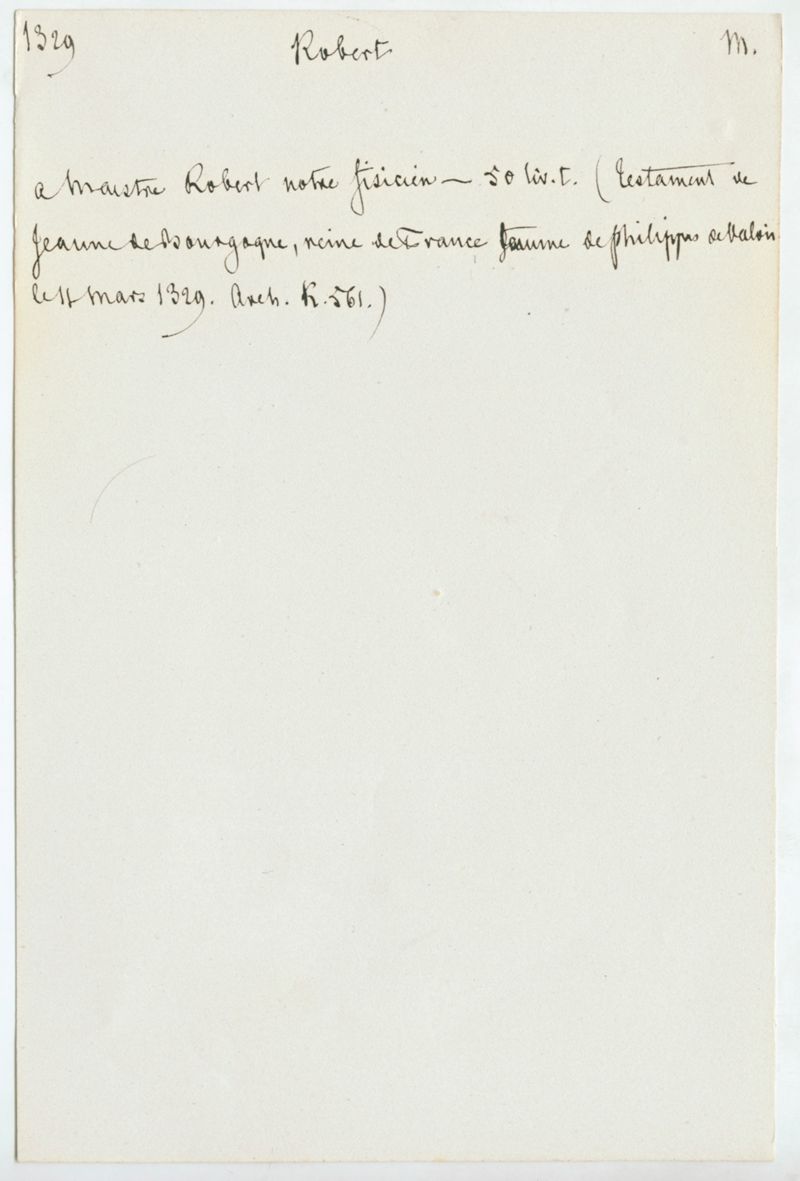 1329 Robert M.
a Maistre Robert notre fisicien — 50 liv. t. (Testament de
Jeanne de Bourgogne, reine de France femme de Philippe de Valois
le 11 Mars 1329. Arch. K. 561.)